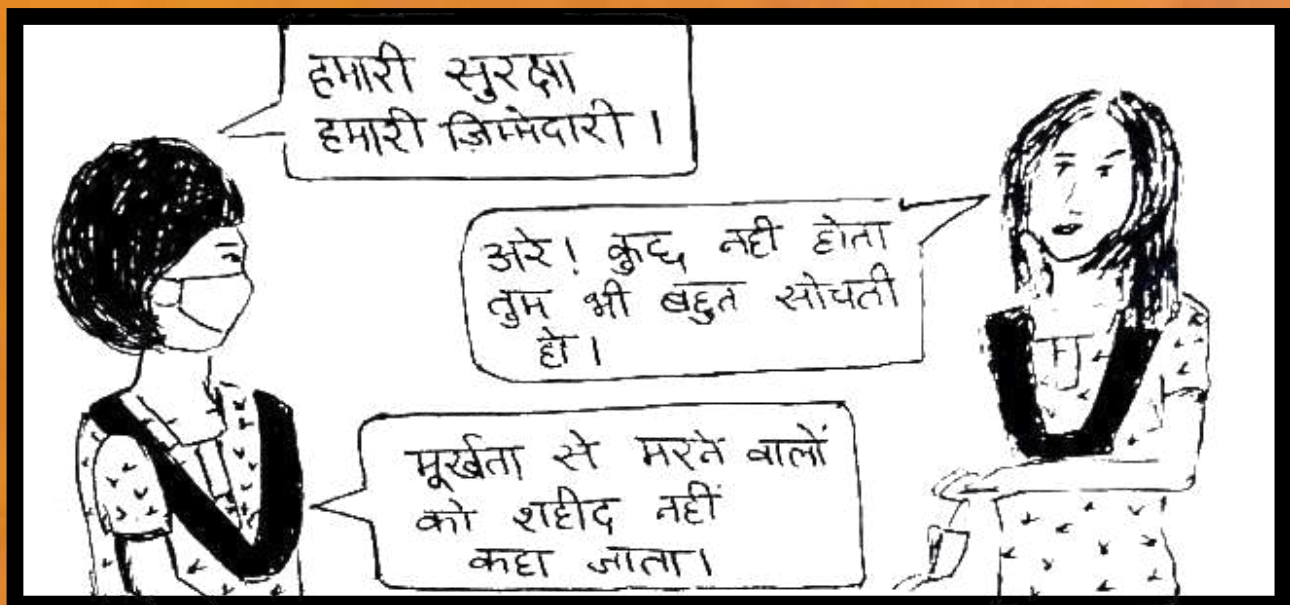 हमारी सुरक्षा
हमारी ज़िम्मेदारी ।
अरे! कुछ नही होता
तुम भी बहुत सोचती
हो ।
मूर्खता से मरने वालों
को शहीद नहीं
कहा जाता।